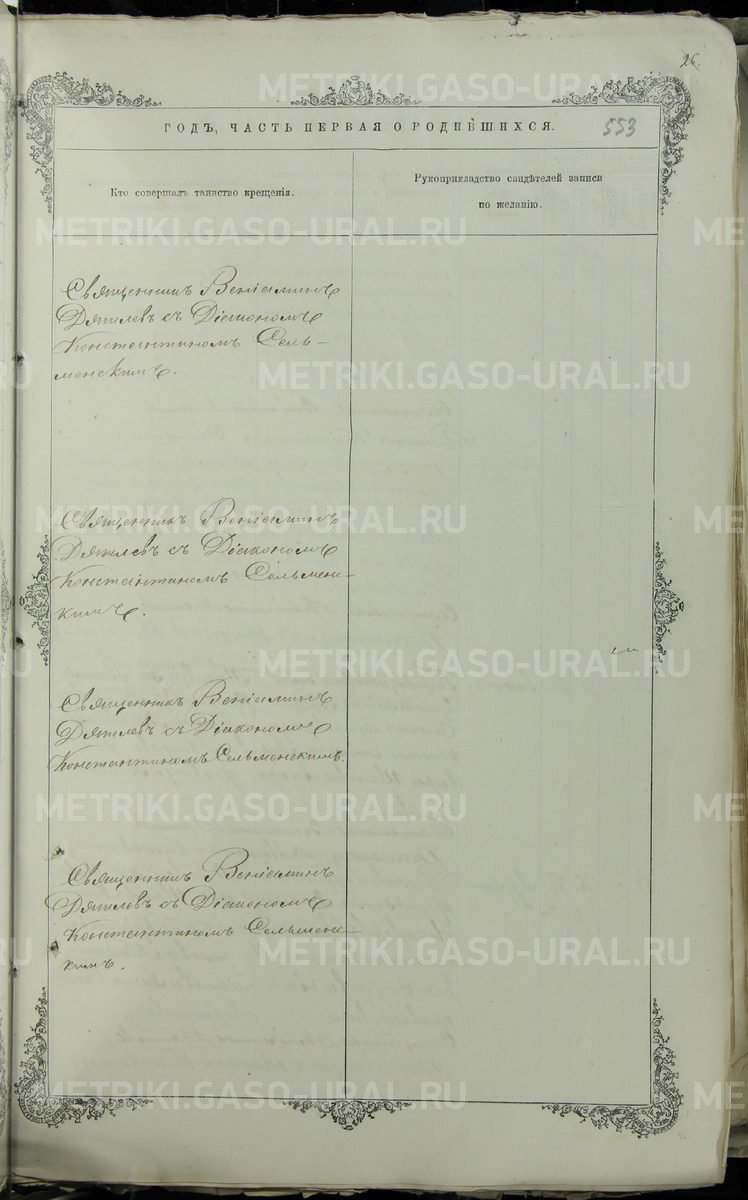 26.
ГОДЪ, ЧАСТЬ ПЕРВАЯ О РОДИВШИХСЯ. 553
Кто совершалъ таинство крещенія.
Рукоприкладство свидѣтелей записи
по желанію.
Священникъ Веніаминъ
Дягилевъ съ Діакономъ
Константиномъ Сель-
менскимъ.
Священникъ Веніаминъ
Дягилевъ съ Діакономъ
Константиномъ Сельменс-
кимъ.
Священникъ Веніаминъ
Дягилевъ съ Діакономъ
Константиномъ Сельменскимъ.
Священникъ Веніаминъ
Дягилевъ съ Діакономъ
Константиномъ Сельменс-
кимъ.
METRIKI.GASO-URAL.RU